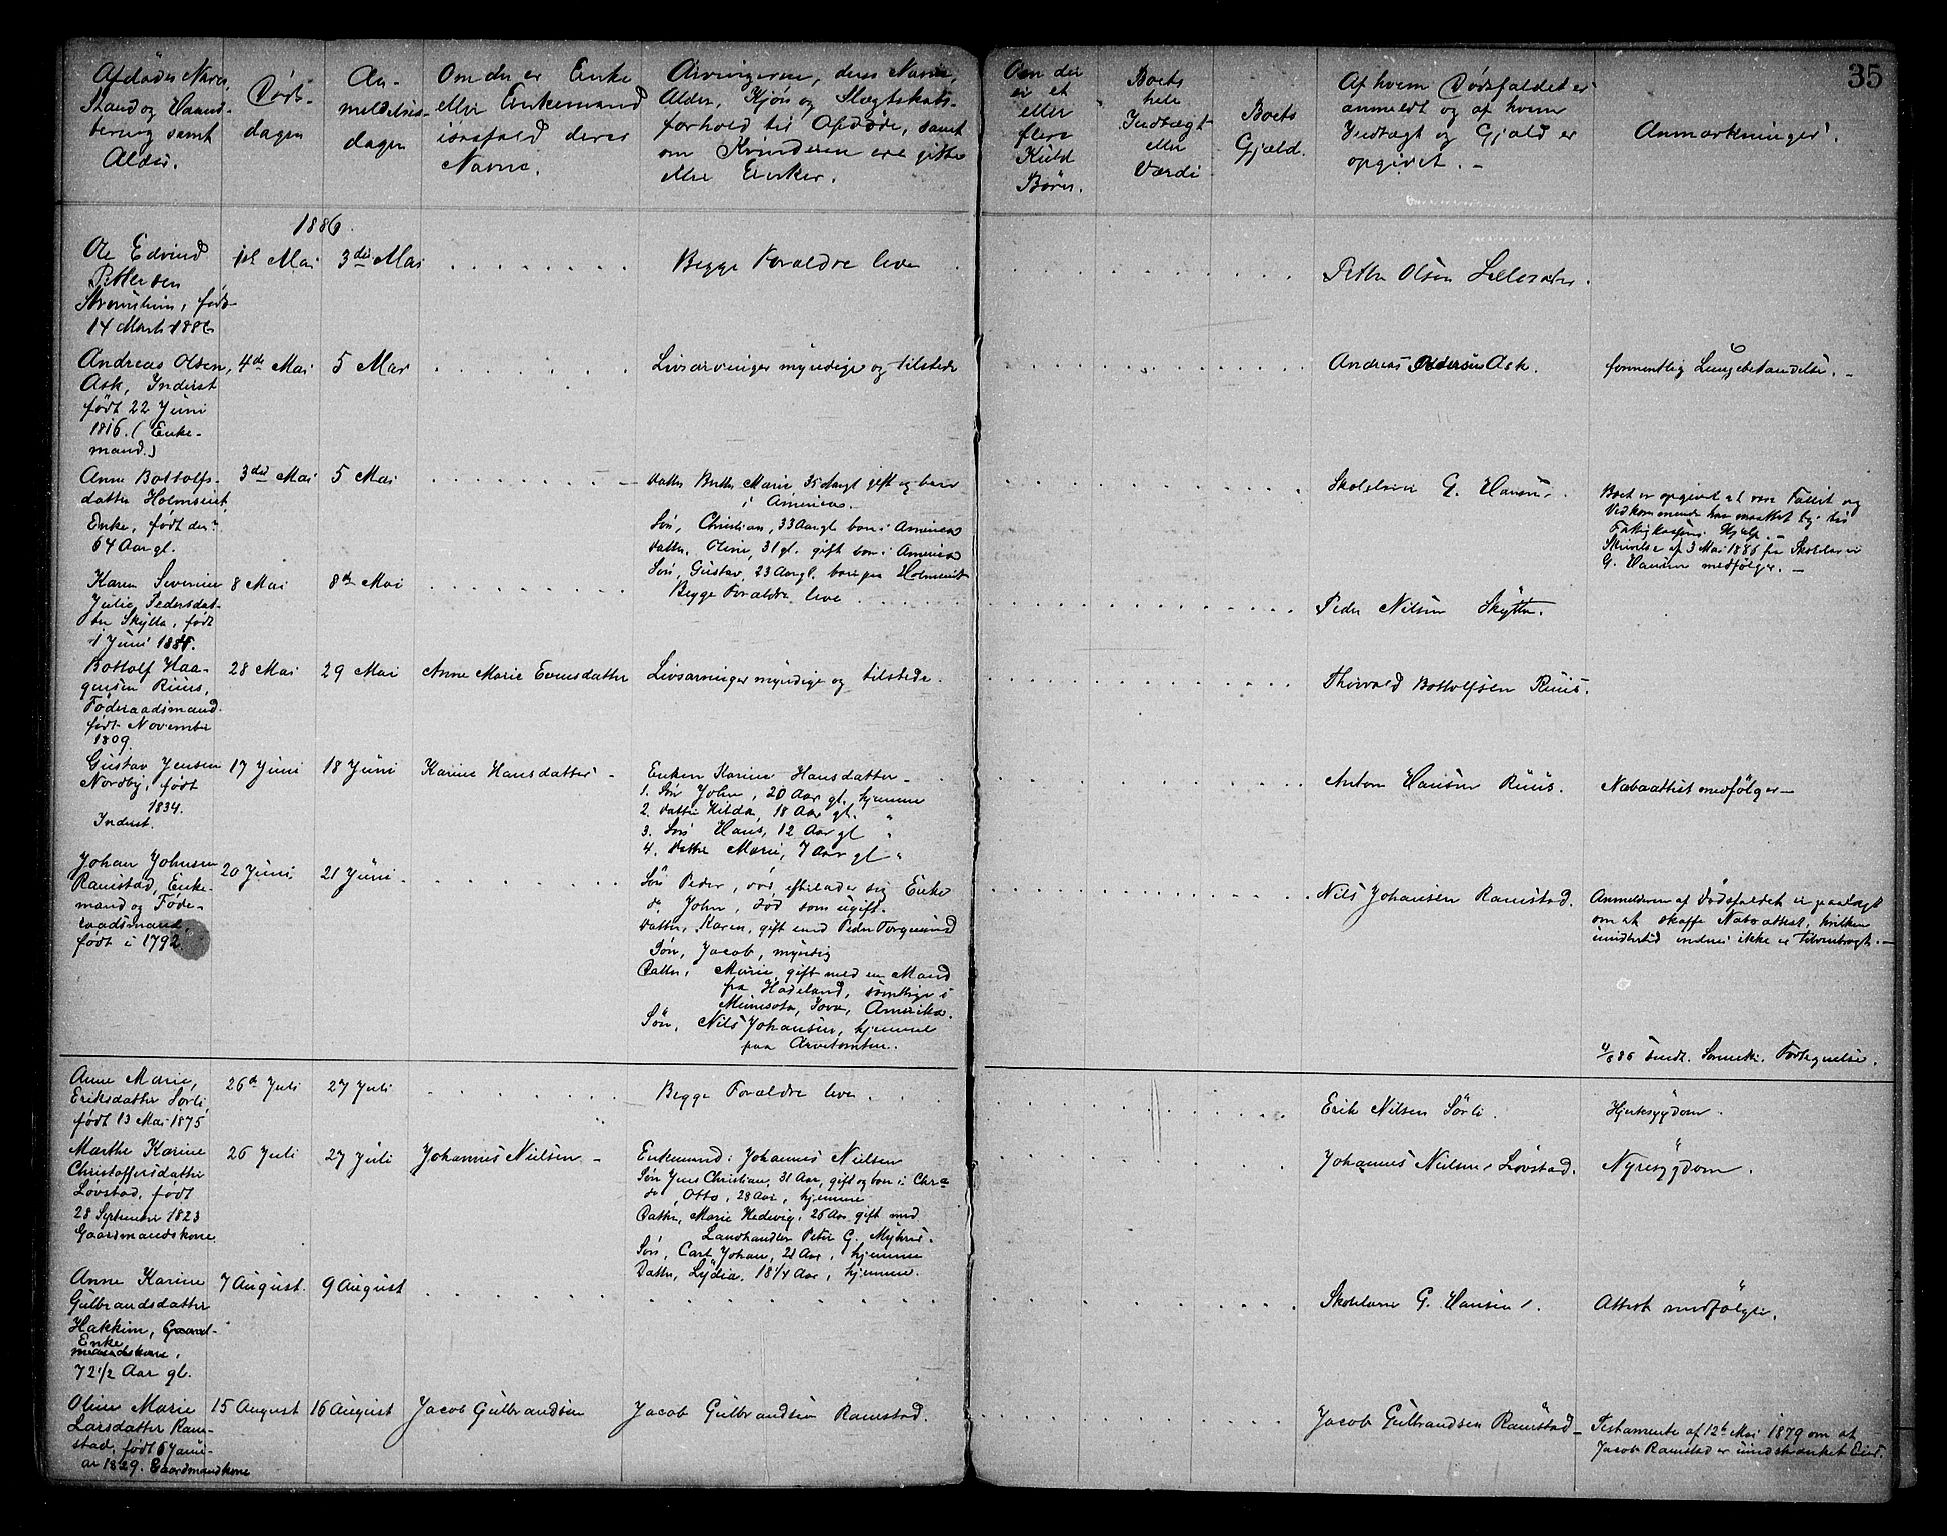 35
Afdødes Navn,
Stand og Haand-
tering samt
Alder.
Døds-
dagen
An-
meldelses-
dagen
Om der er Enke
eller Enkemand
isaafald deres
Navne.
Arvingerne, deres Navn,
Alder, Kjøn og Slægtskabs-
forhold til Afdøde, samt
om Kvinderne ere gifte
eller Enker.
Om der
er et
eller
flere
Kuld
Børn.
Boets
hele
Indtægt
eller
Værdi
Boets
Gjæld.
Af hvem Dødsfaldet er
anmeldt og af hvem
Indtægt og Gjæld er
opgivet. —
Anmærkninger.
1886.
Ole Edvind
Pettersen
født
14 Marts 1886
1st Mai
3die Mai
Begge Forældre leve
Petter Olsen
Andreas Olsen
Ask, Inderst
født 22 Juni
1816. (Enke-
mand.)
4de Mai
5 Mai
Livsarvinger myndige og tilstede
Andreas Ask.
formentlig Lungebetændelse. —
Anne Bottolfs-
datter Holmseiet,
Enke, født den?
64 Aar gl.
3die Mai
5 Mai
Datter Berthe Marie 35 Aar gl gift og boer
i America.
Søn, Christian, 33 Aar gl bor i America
Datter, Oline, 31 gl. gift bor i America
Søn, Gustav, 23 Aar gl. bor paa Holmseiet
Skolelærer G. Hansen.
Boet er opgivet at være Fallit og
Vedkommende har maattet ty til
Fattigkassens Hjælp. —
Skrivelse af 3 Mai 1886 fra Skolelærer
G. Hansen medfølger. —
Karen Severine
Julie Pedersdat-
ter Skytta, født
1 Juni 188
8 Mai
8de Mai
Begge Forældre leve
Peder Nilsen Skytta.
Bottolf Haa-
gensen Ruus,
Føderaadsmand
født November
1809.
28 Mai
29 Mai
Anne Marie Evensdatter
Livsarvinger myndige og tilstede.
Thorvald Bottolfsen Ruus.
Gustav Jensen
Nordby, født
1834.
Inderst.
17 Juni
18 Juni
Karine Hansdatter —
Enken Karine Hansdatter —
1. Søn John, 20 Aar gl. hjemme
2. Datter Hilda, 18 Aar gl. "
3. Søn Hans, 12 Aar gl "
4. Datter Marie, 7 Aar gl "
Anton Hansen Ruus.
Naboattest medfølger —
Johan Johnsen
Ramstad, Enke-
mand og Føde-
raadsmand,
født i 1792
20 Juni
21 Juni
Søn Peder, død, efterlader sig Enke
do John, død som ugift.
Datter, Karen, gift med Peder
Søn, Jacob, myndig
Datter, Marie, gift med en Mand
fra Hadeland, samtlige i
Minnesota, Iova, Amerika.
Søn, Nils Johansen, hjemme
paa Arvetomten.
Nils Johansen Ramstad.
Anmelderen af Dødsfaldet er paalagt
om at skaffe Naboattest, hvilken
imidlertid endnu ikke er tilveiebragt. —
86 Sendt Fortegnelse.
Anne Marie,
Eriksdatter Sørli
født 13 Mai 1875
26de Juli
27 Juli
Begge Forældre leve
Erik Nilsen Sørli.
Hjertesygdom.
Marthe Karine
Christoffersdatter
Løvstad, født
28 September 1823
Gaardmandskone
26 Juli
27 Juli
Johannes Nielsen —
Enkemand: Johannes Nielsen
Søn Jens Christian, 31 Aar, gift og bor i Chra
do, Otto, 28 Aar, hjemme
Datter, Marie Hedevig, 26 Aar gift med
Landhandler Peter G. Myhre.
Søn, Carl Johan, 21 Aar, hjemme
Datter, Lydia, 18 1/4 Aar, hjemme.
Johannes Nielsen Løvstad.
Nyresygdom.
Anne Karine
Gulbrandsdatter
Hakkim, Gaard-
Enke
mandskone,
72 1/2 Aar gl.
7 August.
9 August
Skolelærer G. Hansen.
Attest medfølger.
Oline Marie
Larsdatter Ram-
stad, født 6 Janu-
ar 1829. Gaardmandskone
15 August
16 August
Jacob Gulbrandsen
Jacob Gulbrandsen Ramstad.
Jacob Gulbrandsen Ramstad —
Testamente af 12te Mai 1879 om at
Jacob Ramstad er uindskrænket Eier.